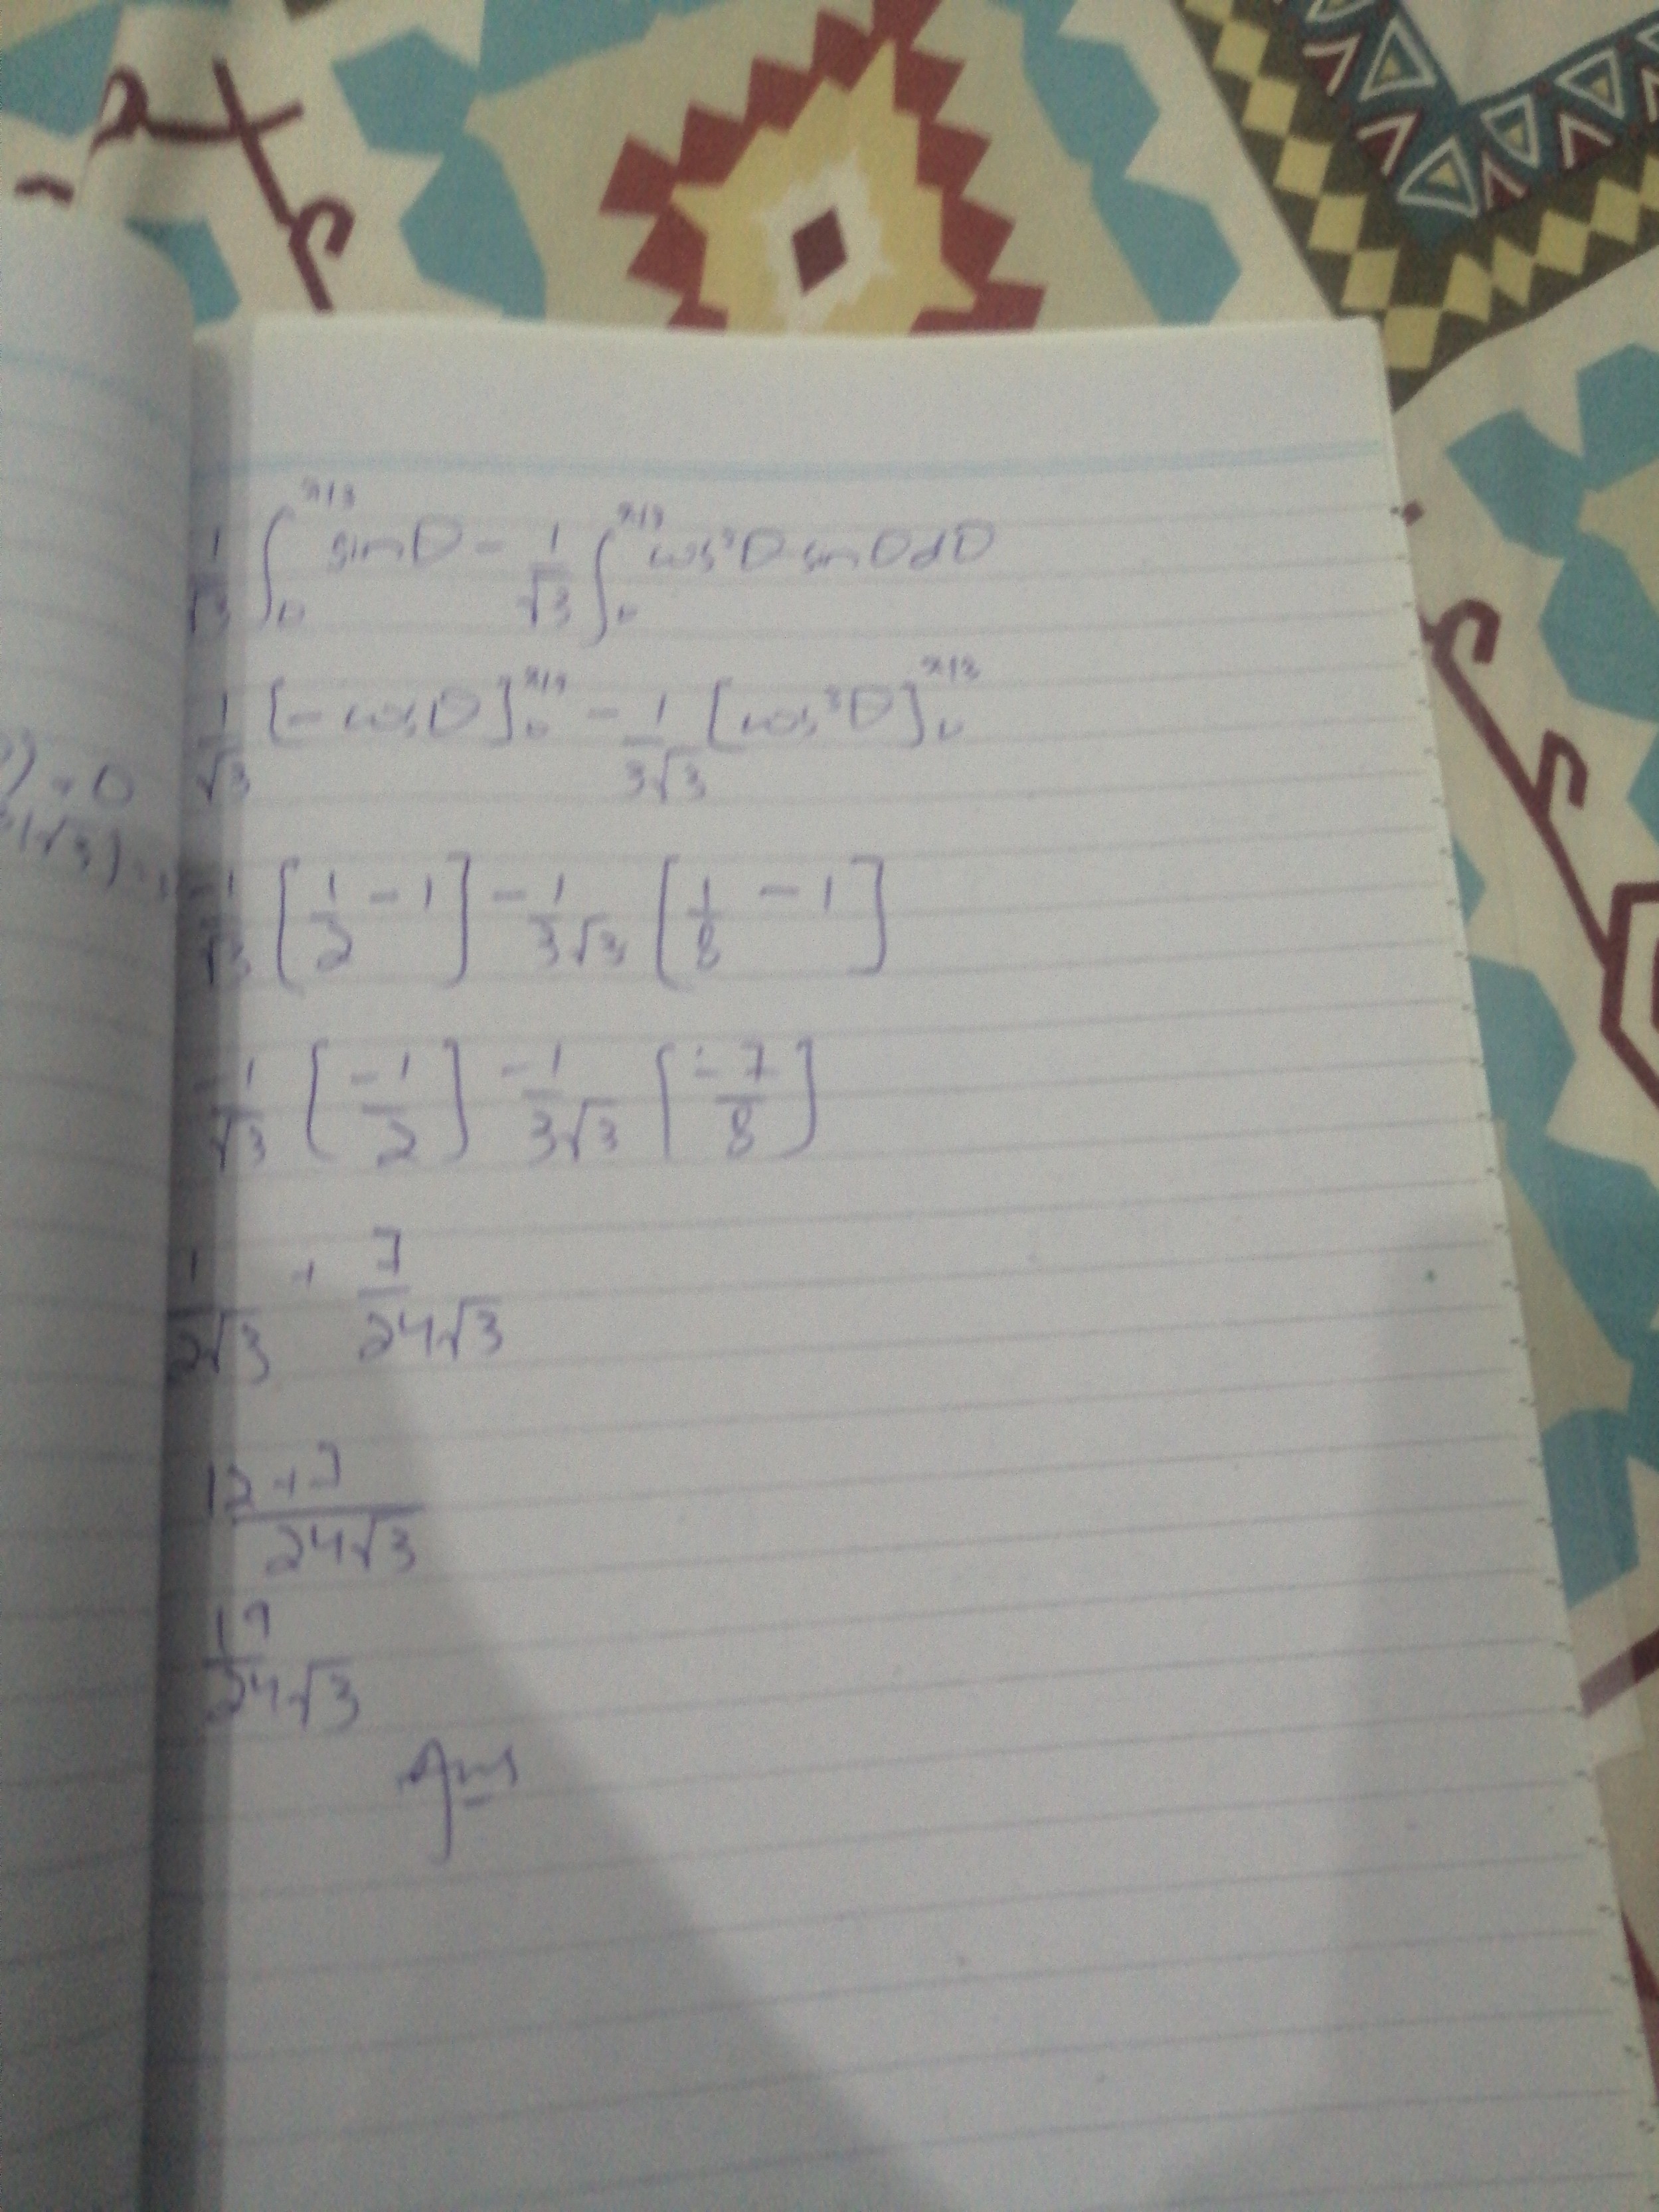 1/√3 ∫₀^π/3 sinθ - 1/√3 ∫₀^π/3 cos²θ sinθ dθ
1/√3 [-cosθ]₀^π/3 - 1/3√3 [cos³θ]₀^π/3
) = 0
(√3) =
-1/√3 [1/2 - 1] - 1/3√3 [1/8 - 1]
-1/√3 [-1/2] - 1/3√3 [-7/8]
1/2√3 + 7/24√3
12+7/24√3
19/24√3
Ans